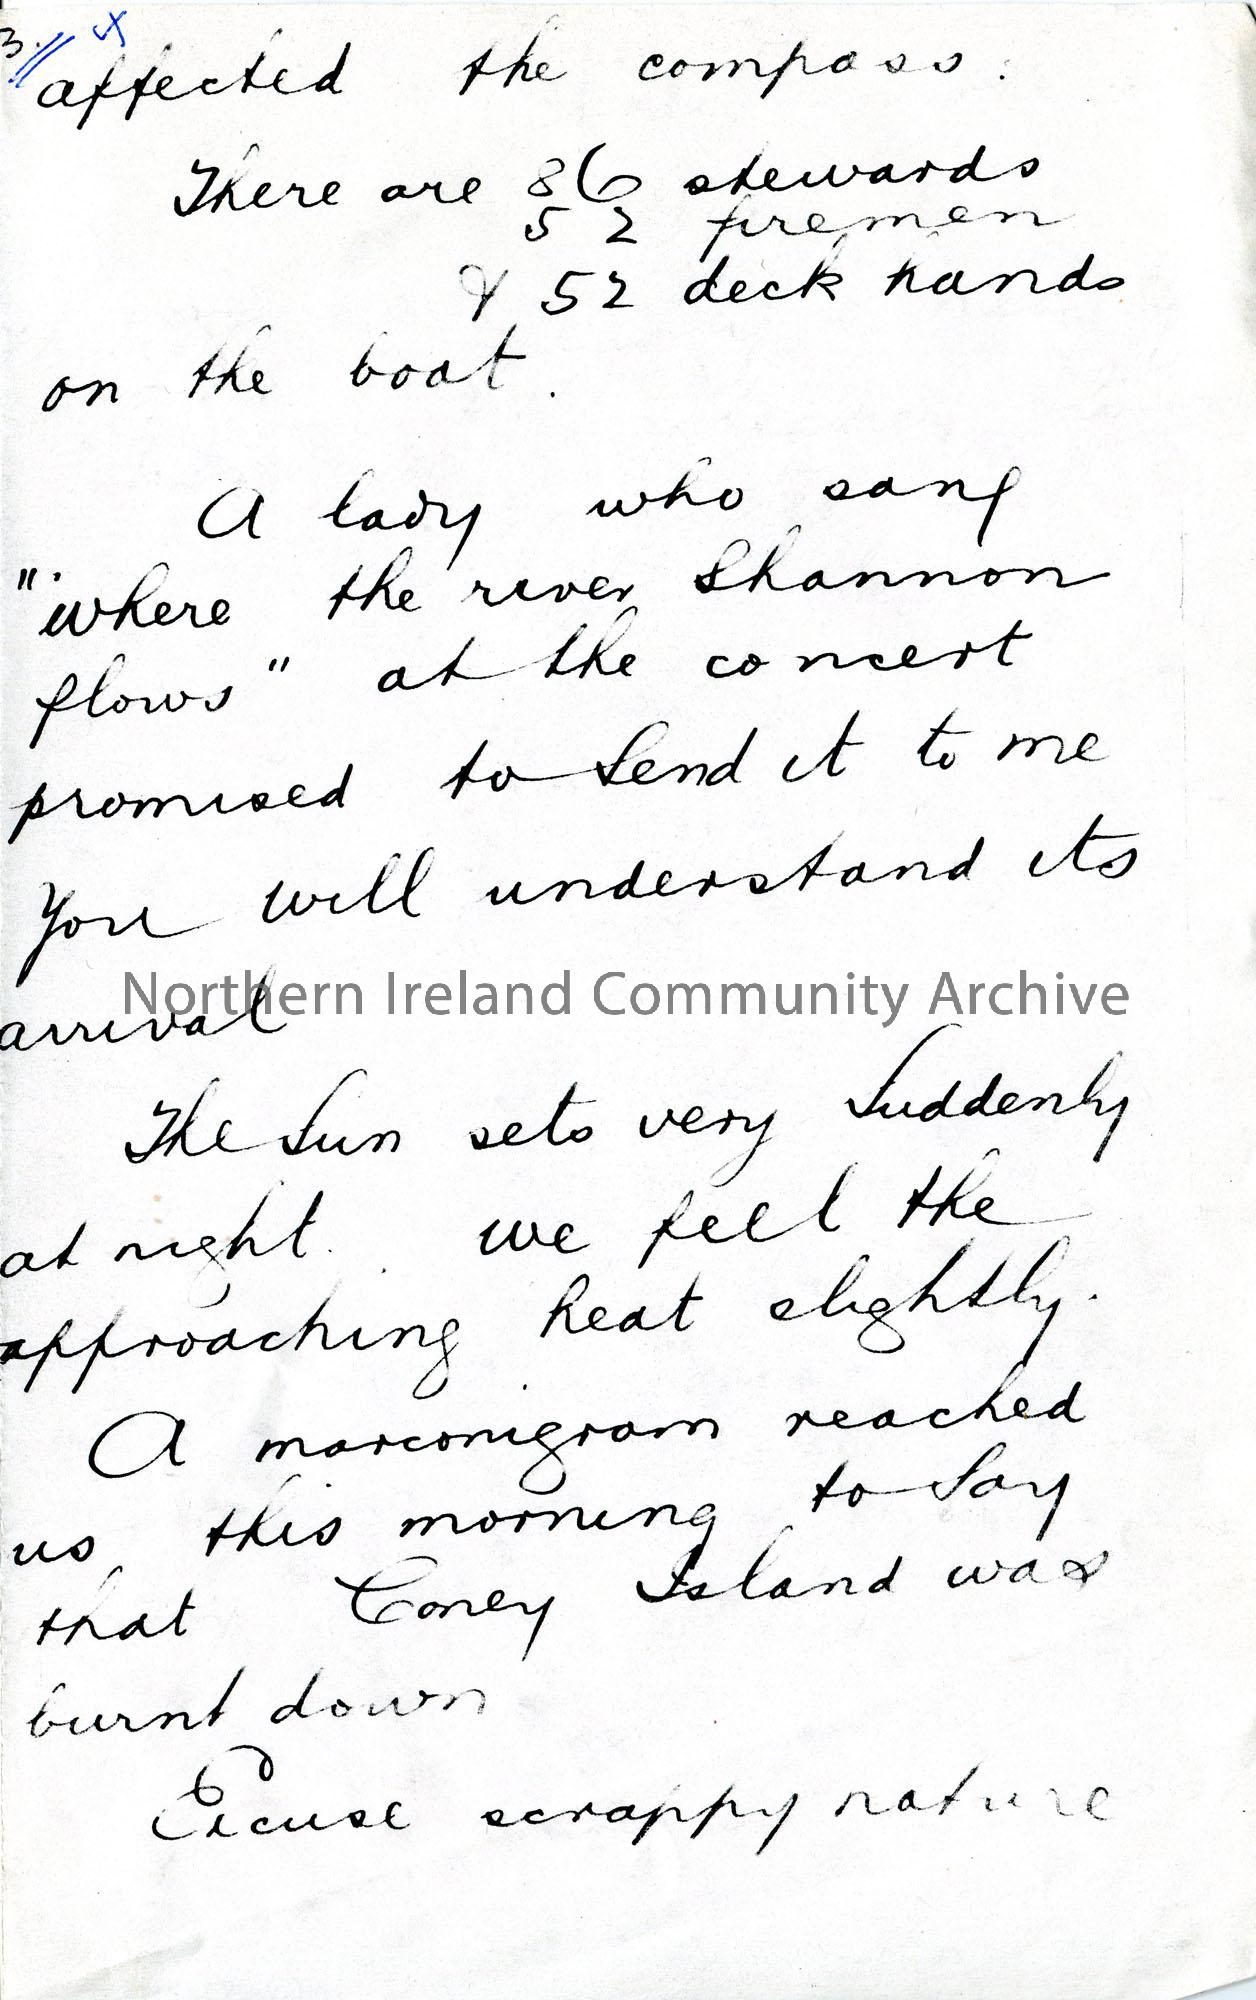 3. 4
affected the compass.
There are 86 stewards
52 firemen
& 52 deck hands
on the boat.
A lady who sang
"where the river Shannon
flows" at the concert
promised to send it to me
You will understand its
arrival
Northern Ireland Community Archive
The Sun sets very Suddenly
at night. we feel the
approaching heat slightly.
A marconigram reached
us this morning to Say
that Coney Island was
burnt down
Excuse scrappy nature